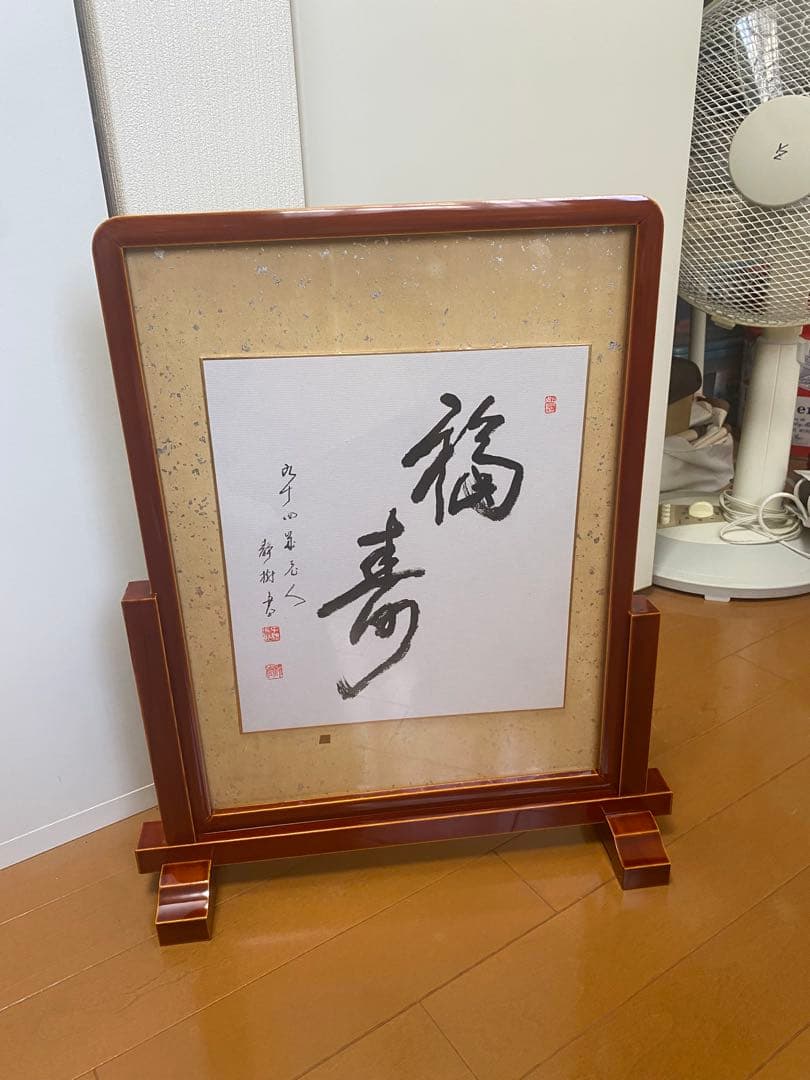 福
寿
九十四歳老人
静樹書